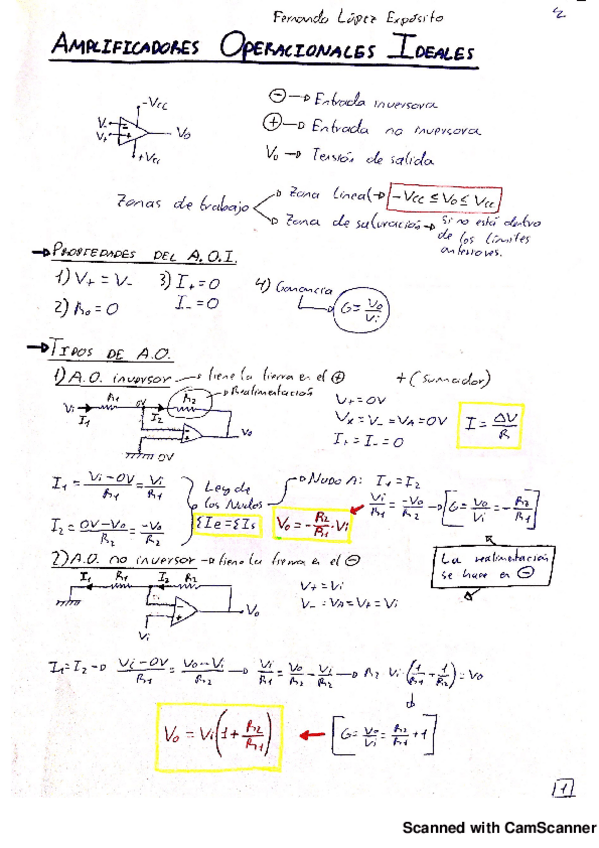 Fernando López Expósito
AMPLIFICADORES OPERACIONALES IDEALES
-Vcc
V-
V+
Vo
+Vcc
⊖ → Entrada inversora
⊕ → Entrada no inversora
Vo → Tensión de salida
Zonas de trabajo
Zona lineal → -Vcc ≤ Vo ≤ Vcc
Zona de saturación → Si no está dentro
de los límites
anteriores.
→ PROPIEDADES DEL A.O.I.
1) V+ = V-
3) I+ = 0
I- = 0
2) Ro = 0
4) Ganancia
G = Vo/Vi
→ TIPOS DE A.O.
1) A.O. inversor → tiene la tierra en el ⊕
+ (sumador)
→ Realimentación
Vi R1 I1 0V I2 R2 Vo 0V
V+ = 0V
Vx = V- = VA = 0V
I+ = I- = 0
I = ΔV/R
I1 = (Vi-0V)/R1 = Vi/R1
I2 = (0V-Vo)/R2 = -Vo/R2
Ley de
los Nudos
ΣIe = ΣIs
→ NUDO A: I1 = I2
Vi/R1 = -Vo/R2 → [G = Vo/Vi = -R2/R1]
Vo = -R2/R1 · Vi
2) A.O. no inversor → tiene la tierra en el ⊖
La realimentación
se hace en ⊖
I1 R1 I2 R2 Vo Vi
V+ = Vi
V- = VA = V+ = Vi
I1 = I2 → (Vi-0V)/R1 = (Vo-Vi)/R2 → Vi/R1 = Vo/R2 - Vi/R2 → R2 Vi·(1/R1 + 1/R2) = Vo
Vo = Vi(1 + R2/R1) ← [G = Vo/Vi = R2/R1 + 1]
1
Scanned with CamScanner